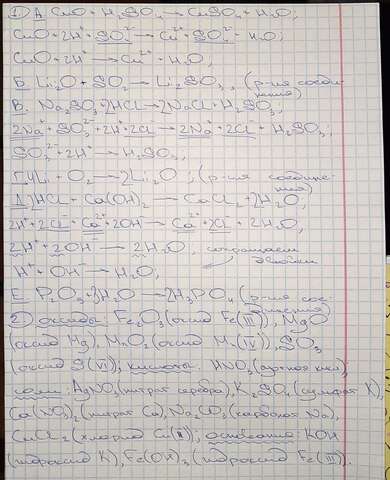 1) А. CuO + H₂SO₄ → CuSO₄ + H₂O;
CuO + 2H⁺ + SO₄²⁻ → Cu²⁺ + SO₄²⁻ + H₂O;
CuO + 2H⁺ → Cu²⁺ + H₂O;
Б. Li₂O + SO₂ → Li₂SO₃; (р-ия соеди-
нения)
В. Na₂SO₃ + 2HCl → 2NaCl + H₂SO₃;
2Na⁺ + SO₃²⁻ + 2H⁺ + 2Cl⁻ → 2Na⁺ + 2Cl⁻ + H₂SO₃;
SO₃²⁻ + 2H⁺ → H₂SO₃;
Г. 4Li + O₂ → 2Li₂O; (р-ия соедине-
ния)
Д. 2HCl + Ca(OH)₂ → CaCl₂ + 2H₂O;
2H⁺ + 2Cl⁻ + Ca²⁺ + 2OH⁻ → Ca²⁺ + 2Cl⁻ + 2H₂O;
2H⁺ + 2OH⁻ → 2H₂O; сокращаем
H⁺ + OH⁻ → H₂O;
Е. P₂O₅ + 3H₂O → 2H₃PO₄ (р-ия сое-
динения)
2) оксиды: Fe₂O₃ (оксид Fe(III)), MgO
(оксид Mg), MnO₂ (оксид Mn(IV)), SO₃
(оксид S(VI)); кислоты: HNO₃ (азотная к-та);
соли: AgNO₃ (нитрат серебра), K₂SO₄ (сульфат K),
Ca(NO₃)₂ (нитрат Ca), Na₂CO₃ (карбонат Na),
CuCl₂ (хлорид Cu(II)); основания: KOH
(гидроксид K), Fe(OH)₃ (гидроксид Fe(III)).